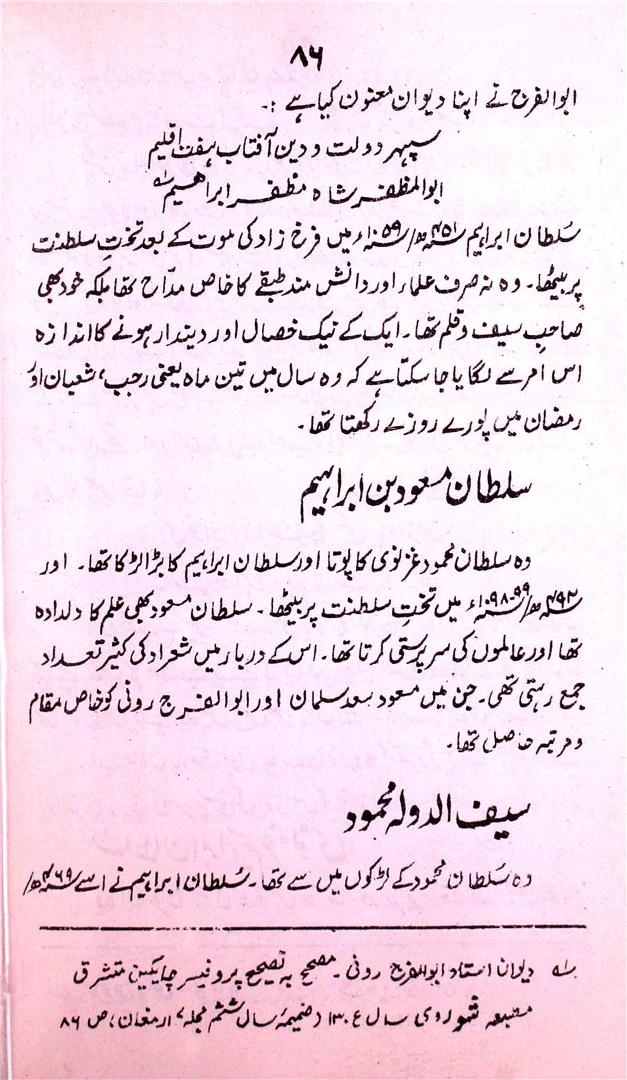 ۸۶
ابوالفرج نے اپنا دیوان معنون کیا ہے :۔
سپہر دولت و دین آفتاب ہفت اقلیم
ابوالمظفر شاہ مظفر ابراھسیم ؎۱
سُلطان ابراہیم ۴۵۱ھ/۱۰۵۹ء میں فرخ زاد کی موت کے بعد تختِ سلطنت
پر بیٹھا۔ وہ نہ صرف علماء اور دانش مند طبقے کا خاص مدّاح تھا بلکہ خود بھی
صاحبِ سیف و قلم تھا۔ ایک کے نیک خصال اور دیندار ہونے کا اندازہ
اس امر سے لگایا جا سکتا ہے کہ وہ سال میں تین ماہ یعنی رجب، شعبان اور
رمضان میں پورے روزے رکھتا تھا۔
سلطان مسعود بن ابراہیم
وہ سلطان محمود غزنوی کا پوتا اور سلطان ابراہیم کا بڑا لڑکا تھا۔ اور
۴۹۲ھ/۹۹۔۱۰۹۸ء میں تختِ سلطنت پر بیٹھا۔ سلطان مسعود بھی علم کا دلدادہ
تھا اور عالموں کی سرپرستی کرتا تھا۔ اس کے دربار میں شعراء کی کثیر تعداد
جمع رہتی تھی۔ جن میں مسعود سعد سلمان اور ابوالفرج رونی کو خاص مقام
و مرتبہ حاصل تھا۔
سیف الدولہ محمود
وہ سُلطان محمود کے لڑکوں میں سے تھا۔ سُلطان ابراہیم نے اسے ۴۶۹ھ/
؎۱ دیوان استاد ابوالفرج رونی۔ مصحح بہ تصحیح پروفیسر چایکین متشرق
مطبعہ شوروی سال ۱۳۰۴ (ضمیمۂ سال ششم مجلہ ارمغان، ص ۸۶